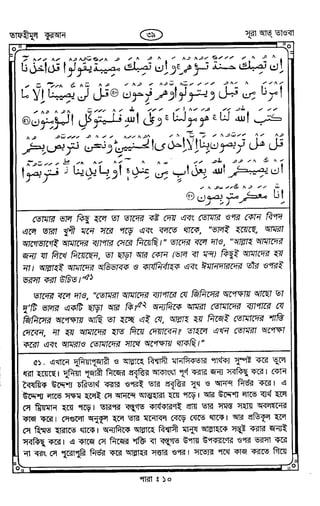 তাফহীমুল কুরআন
৩৯
সূরা আত্ তাওবা
إِنْ تُصِبْكَ حَسَنَةٌ تَسُؤْهُمْ ۚ وَإِنْ تُصِبْكَ مُصِيبَةٌ يَقُولُوا قَدْ أَخَذْنَا
أَمْرَنَا مِنْ قَبْلُ وَيَتَوَلَّوْا وَهُمْ فَرِحُونَ ۝ قُلْ لَنْ يُصِيبَنَا إِلَّا مَا
كَتَبَ اللَّهُ لَنَا ۚ هُوَ مَوْلَانَا ۚ وَعَلَى اللَّهِ فَلْيَتَوَكَّلِ الْمُؤْمِنُونَ ۝
قُلْ هَلْ تَرَبَّصُونَ بِنَا إِلَّا إِحْدَى الْحُسْنَيَيْنِ ۖ وَنَحْنُ نَتَرَبَّصُ بِكُمْ
أَنْ يُصِيبَكُمُ اللَّهُ بِعَذَابٍ مِنْ عِنْدِهِ أَوْ بِأَيْدِينَا ۖ فَتَرَبَّصُوا
إِنَّا مَعَكُمْ مُتَرَبِّصُونَ ۝
তোমার ভাল কিছু হলে তা তাদের কষ্ট দেয় এবং তোমার ওপর কোন বিপদ
এলে তারা খুশী মনে সরে পড়ে এবং বলতে থাকে, “ভালই হয়েছে, আমরা
আগেভাগেই আমাদের ব্যাপার সেরে নিয়েছি।” তাদের বলে দাও, “আল্লাহ আমাদের
জন্য যা লিখে দিয়েছেন, তা ছাড়া আর কোন (ভাল বা মন্দ) কিছুই আমাদের হয়
না। আল্লাহই আমাদের অভিভাবক ও কার্যনির্বাহক এবং ঈমানদারদের তাঁর ওপরই
ভরসা করা উচিত।”৫১
তাদের বলে দাও, “তোমরা আমাদের ব্যাপারে যে জিনিসের অপেক্ষায় আছো তা
দু’টি ভালর একটি ছাড়া আর কি?৫২ অন্যদিকে আমরা তোমাদের ব্যাপারে যে
জিনিসের অপেক্ষায় আছি তা হচ্ছে এই যে, আল্লাহ হয় নিজেই তোমাদের শাস্তি
দেবেন, না হয় আমাদের হাত দিয়ে দেয়াবেন? তাহলে এখন তোমরা অপেক্ষা
করো এবং আমরাও তোমাদের সাথে অপেক্ষায় থাকছি।”
৫১. এখানে দুনিয়াপূজারী ও আল্লাহে বিশ্বাসী মানসিকতার পার্থক্য সুস্পষ্ট করে তুলে
ধরা হয়েছে। দুনিয়া পূজারী নিজের প্রবৃত্তির আকাংখা পূর্ণ করার জন্য সবকিছু করে। কোন
বৈষয়িক উদ্দেশ্য চরিতার্থ করার ওপরই তার প্রবৃত্তির সুখ ও আনন্দ নির্ভর করে। এ
উদ্দেশ্য লাভে সক্ষম হলেই সে আনন্দে আত্মহারা হয়ে পড়ে। আর উদ্দেশ্য লাভে ব্যর্থ হলে
সে ম্রিয়মান হয়ে পড়ে। তারপর বস্তুগত কার্যকারণই প্রায় তার সমস্ত সহায় অবলম্বনের
কাজ করে। সেগুলো অনুকূল হলে তার মনোবল বেড়ে যেতে থাকে। আর প্রতিকূল হলে
সে হিম্মত হারাতে থাকে। অন্যদিকে আল্লাহে বিশ্বাসী মানুষ আল্লাহকে সন্তুষ্ট করার জন্যই
সবকিছু করে। এ কাজে সে নিজের শক্তি বা বস্তুগত উপায় উপকরণের ওপর ভরসা করে
না বরং সে পুরোপুরি নির্ভর করে আল্লাহর সত্তার ওপর। সত্যের পথে কাজ করতে গিয়ে
পারা : ১০